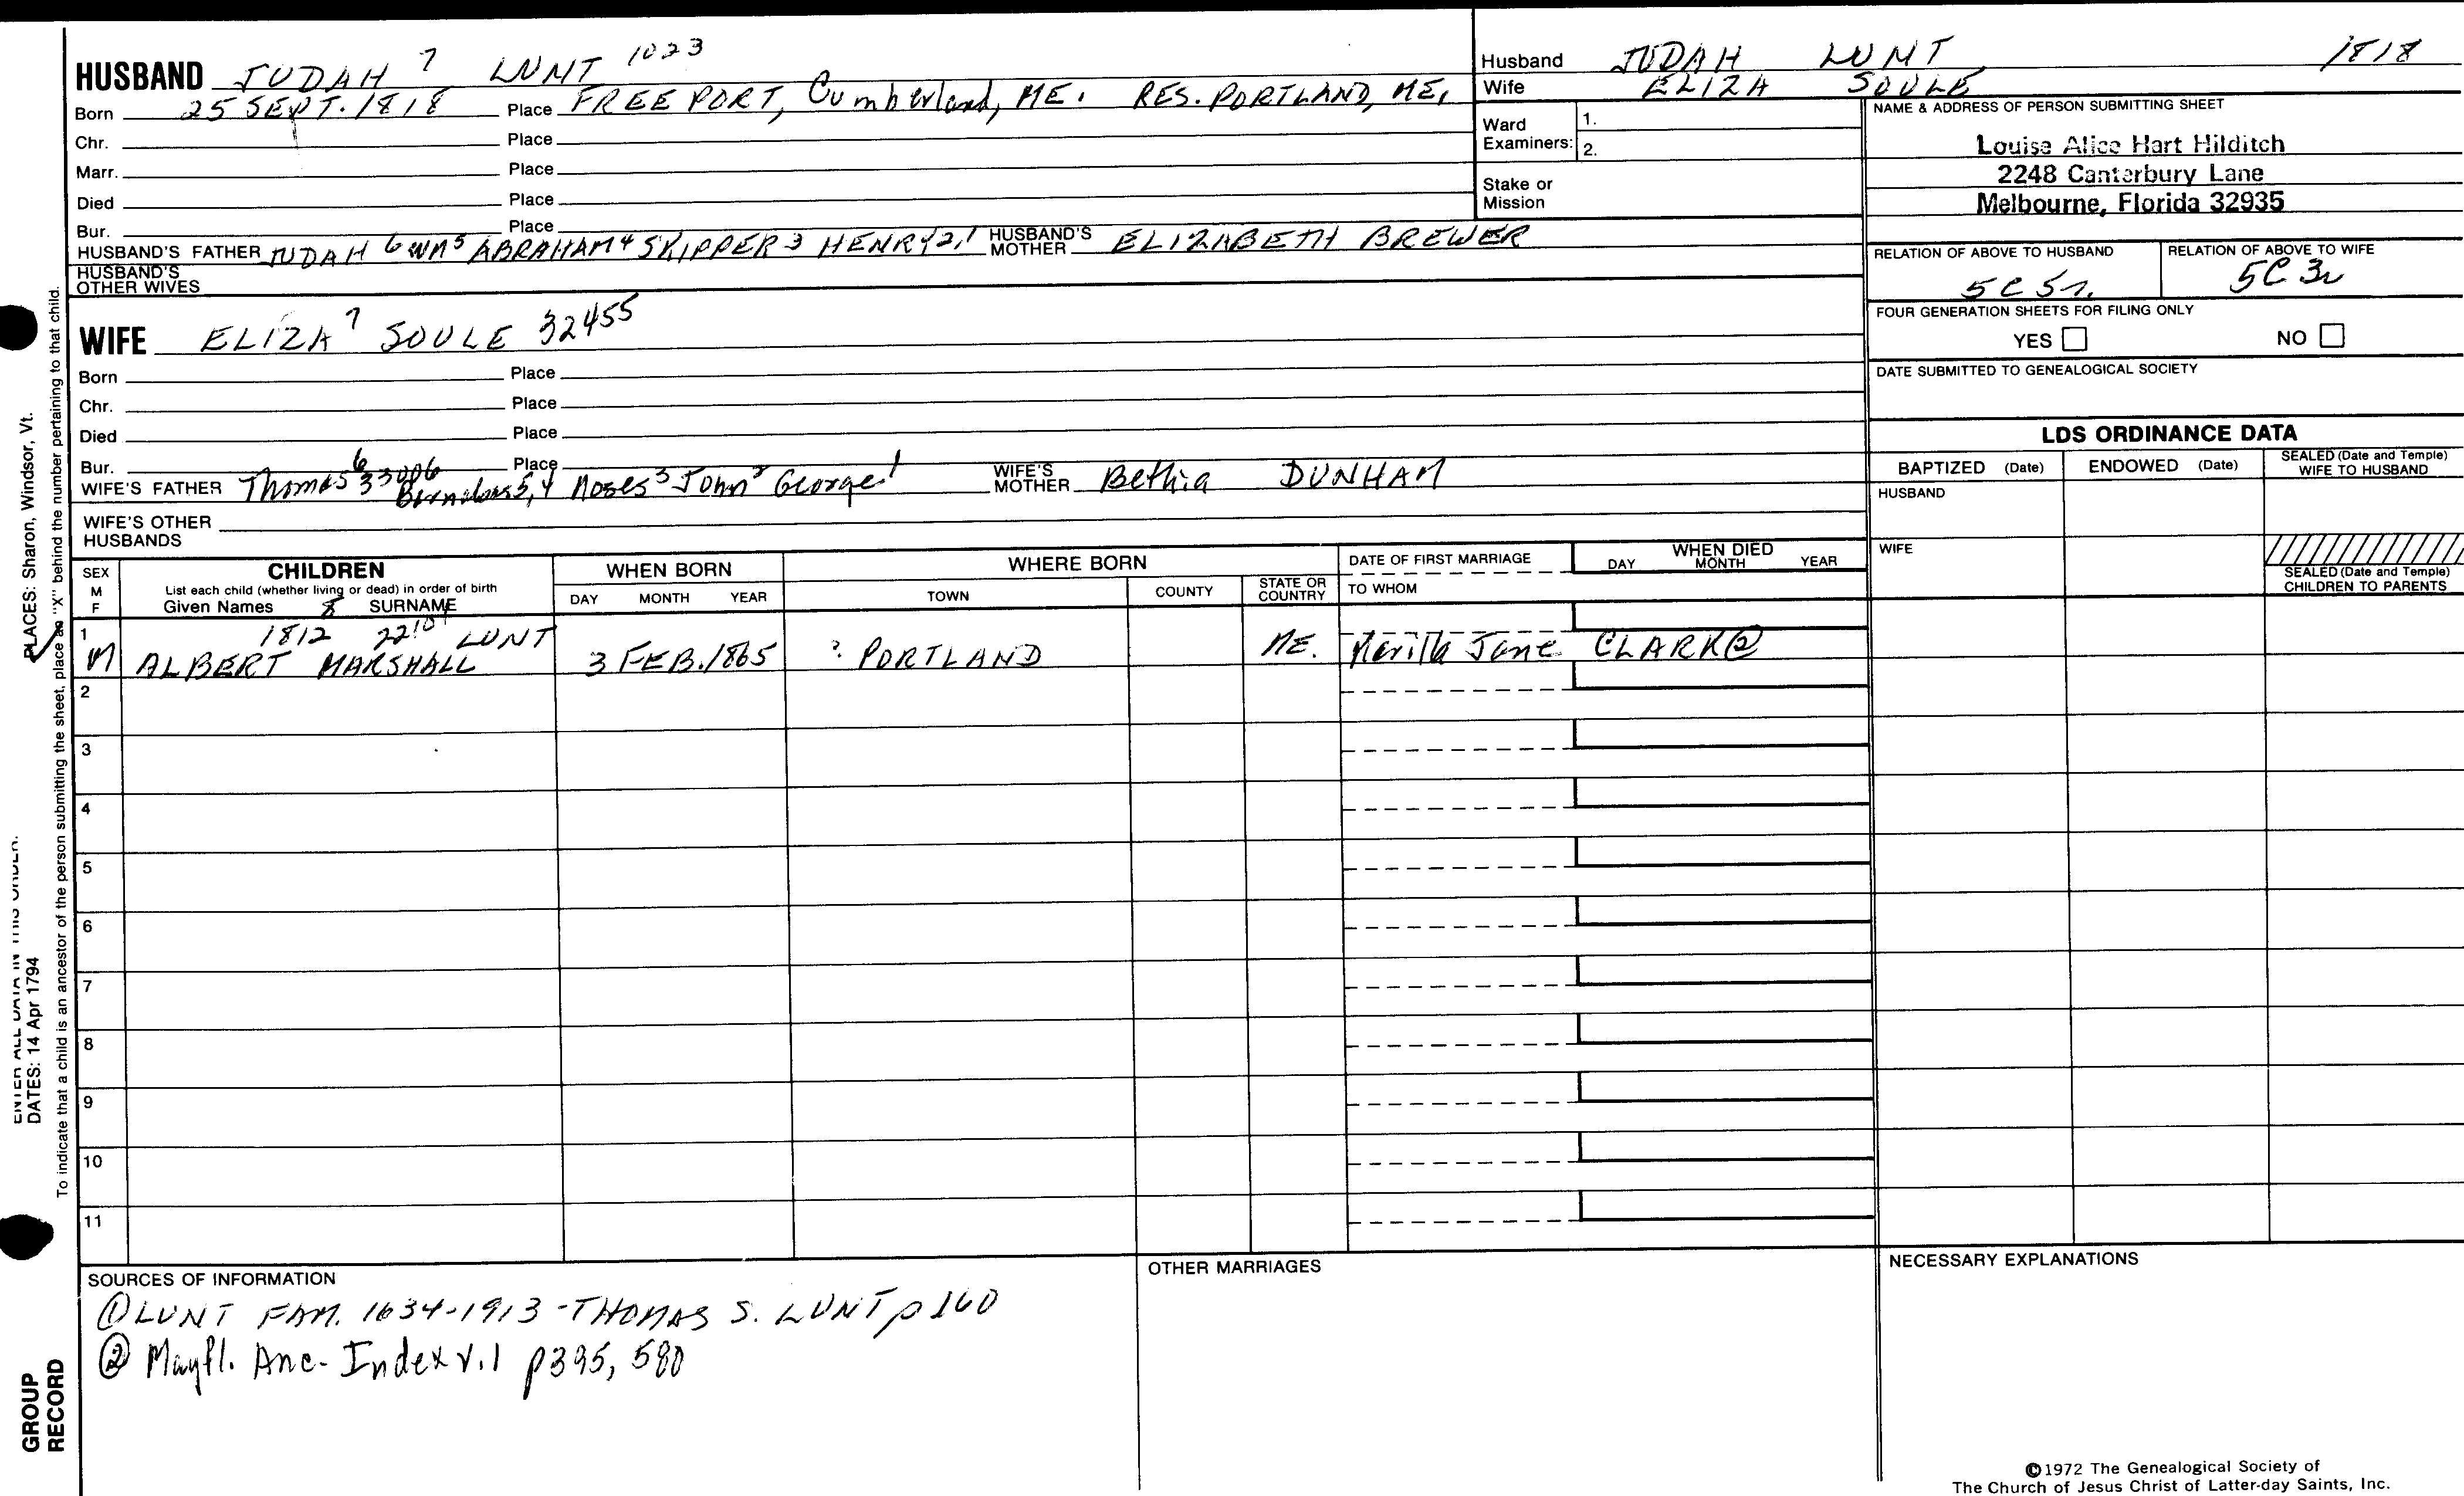 HUSBAND JUDAH 7 LUNT 1023
Born 25 SEPT. 1818 Place FREEPORT, Cumberland, ME. RES. PORTLAND, ME.
Chr. Place
Marr. Place
Died Place
Bur. Place
HUSBAND'S FATHER JUDAH 6 WM 5 ABRAHAM 4 SKIPPER 3 HENRY 2,1 HUSBAND'S MOTHER ELIZABETH BREWER
HUSBAND'S OTHER WIVES
Husband JUDAH LUNT 1818
Wife ELIZA SOULE
Ward Examiners: 1.
2.
Stake or Mission
NAME & ADDRESS OF PERSON SUBMITTING SHEET
Louise Alice Hart Hilditch
2248 Canterbury Lane
Melbourne, Florida 32935
RELATION OF ABOVE TO HUSBAND RELATION OF ABOVE TO WIFE
5C 5r. 5C 3r
FOUR GENERATION SHEETS FOR FILING ONLY
YES NO
DATE SUBMITTED TO GENEALOGICAL SOCIETY
WIFE ELIZA 7 SOULE 32455
Born Place
Chr. Place
Died Place
Bur. Place
WIFE'S FATHER Thomas 6 33006 5,4 Moses 3 John 2 George 1 WIFE'S MOTHER Bethia DUNHAM
WIFE'S OTHER HUSBANDS
LDS ORDINANCE DATA
BAPTIZED (Date) ENDOWED (Date) SEALED (Date and Temple) WIFE TO HUSBAND
HUSBAND
WIFE
SEALED (Date and Temple) CHILDREN TO PARENTS
SEX M F
CHILDREN
List each child (whether living or dead) in order of birth
Given Names 8 SURNAME
WHEN BORN
DAY MONTH YEAR
WHERE BORN
TOWN COUNTY STATE OR COUNTRY
DATE OF FIRST MARRIAGE
TO WHOM
WHEN DIED
DAY MONTH YEAR
1 1812 LUNT
M ALBERT MARSHALL 3 FEB. 1865 ? PORTLAND ME. Marilla Jane CLARK ②
2
3
4
5
6
7
8
9
10
11
SOURCES OF INFORMATION
① LUNT FAM. 1634-1913 - THOMAS S. LUNT p 160
② Mayfl. Anc. Index v.1 p395, 580
OTHER MARRIAGES
NECESSARY EXPLANATIONS
©1972 The Genealogical Society of
The Church of Jesus Christ of Latter-day Saints, Inc.
PLACES: Sharon, Windsor, Vt.
DATES: 14 Apr 1794
To indicate that a child is an ancestor of the person submitting the sheet, place an "X" behind the number pertaining to that child.
GROUP
RECORD